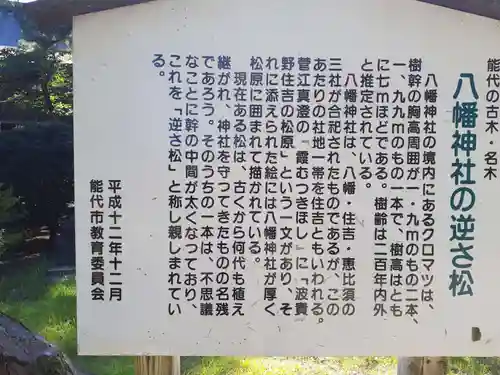 能代の古木・名木
八幡神社の逆さ松
八幡神社の境内にあるクロマツは、
樹幹の胸高周囲が一・九ｍのもの二本、
一・九九ｍのもの一本で、樹高はとも
に七ｍほどである。樹齢は二百年内外
と推定されている。
八幡神社は、八幡・住吉・恵比須の
三社が合祀されたものであるが、この
あたりの社地一帯を住吉ともいわれる。
菅江真澄の『霞むつきほし』に「波費
野住吉の松原」という一文があり、そ
れに添えられた絵には八幡神社が厚く
松原に囲まれて描かれている。
現在ある松は、古くから何代も植え
継がれ、神社を守ってきたものの名残
であろう。そのうちの一本は、不思議
なことに幹の中間が太くなっており、
これを「逆さ松」と称し親しまれてい
る。
平成十二年十二月
能代市教育委員会